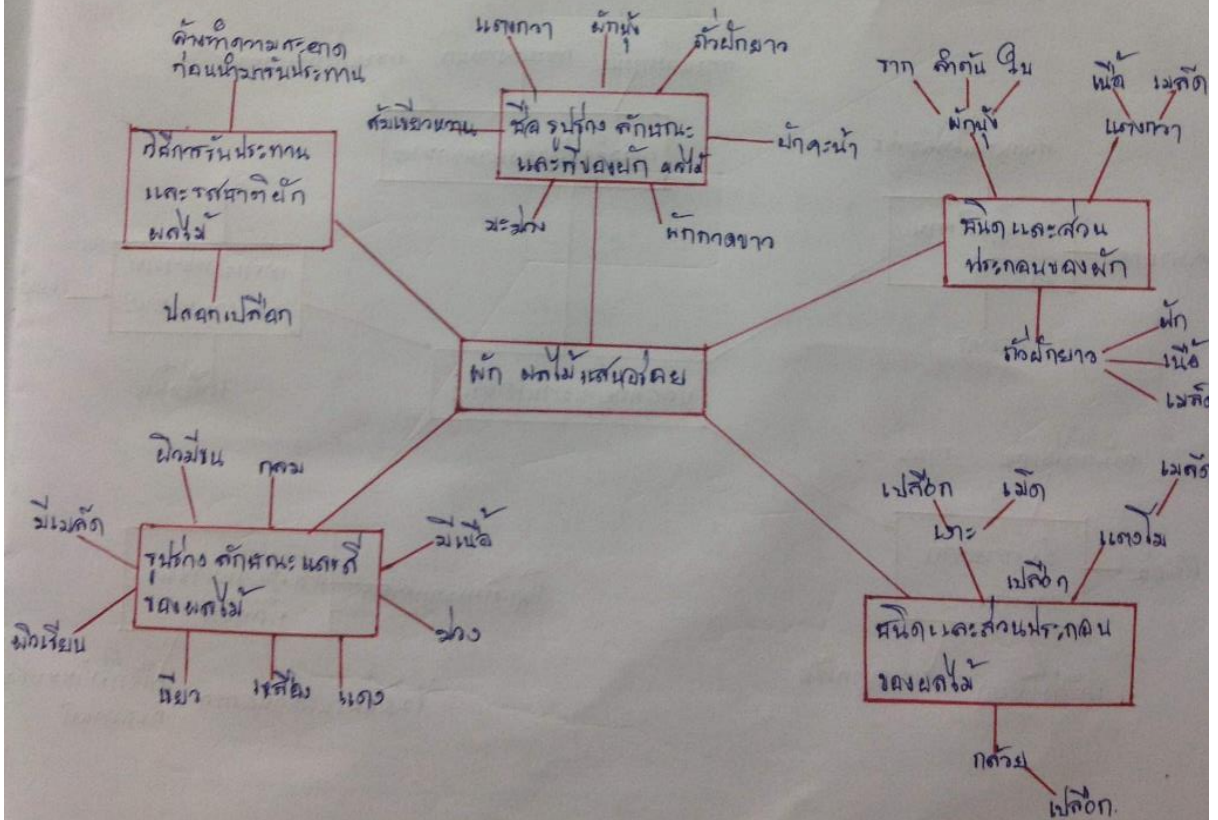 ล้างทำความสะอาด
ก่อนนำมารับประทาน
วิธีการรับประทาน
และรสชาติผัก
ผลไม้
ปลอกเปลือก
แตงกวา
ผักบุ้ง
ถั่วฝักยาว
ส้มเขียวหวาน
ชื่อ รูปร่าง ลักษณะ
และสีของผัก ผลไม้
ผักคะน้า
มะม่วง
ผักกาดขาว
ราก ลำต้น ใบ
ผักบุ้ง
เนื้อ เมล็ด
แตงกวา
ชนิดและส่วน
ประกอบของผัก
ถั่วฝักยาว
ฝัก
เนื้อ
เมล็ด
ผัก ผลไม้แสนอร่อย
ผิวมีขน
กลม
มีเมล็ด
มีเนื้อ
รูปร่าง ลักษณะและสี
ของผลไม้
ผิวเรียบ
ม่วง
เขียว
เหลือง
แดง
เปลือก
เม็ด
เงาะ
เมล็ด
แตงโม
เปลือก
ชนิดและส่วนประกอบ
ของผลไม้
กล้วย
เปลือก.